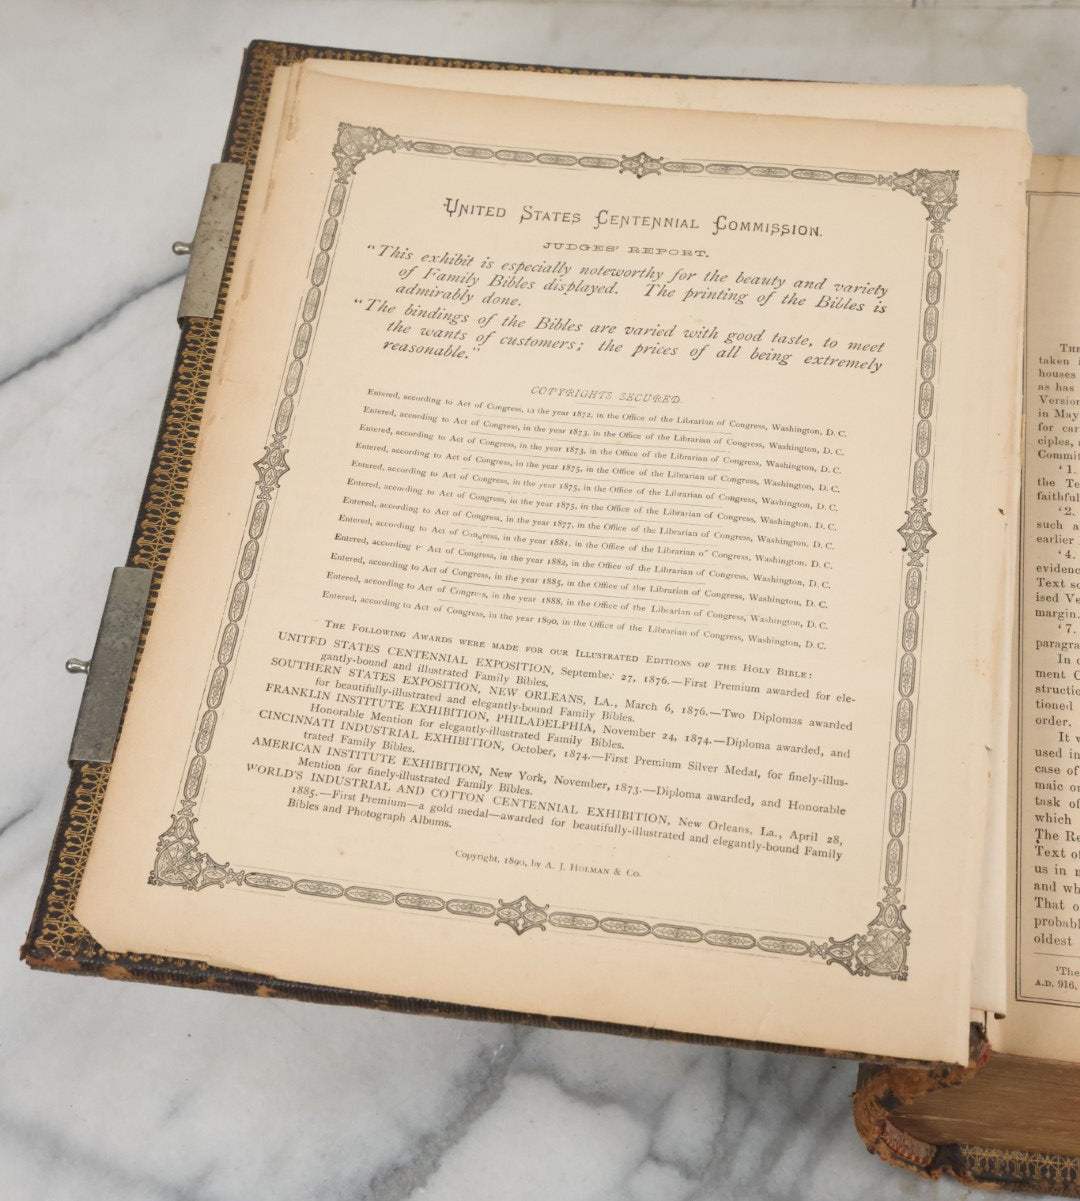 UNITED STATES CENTENNIAL COMMISSION.
JUDGES' REPORT.
"This exhibit is especially noteworthy for the beauty and variety
of Family Bibles displayed. The printing of the Bibles is
admirably done.
"The bindings of the Bibles are varied with good taste, to meet
the wants of customers; the prices of all being extremely
reasonable."
COPYRIGHTS SECURED.
Entered, according to Act of Congress, in the year 1872, in the Office of the Librarian of Congress, Washington, D. C.
Entered, according to Act of Congress, in the year 1873, in the Office of the Librarian of Congress, Washington, D. C.
Entered, according to Act of Congress, in the year 1873, in the Office of the Librarian of Congress, Washington, D. C.
Entered, according to Act of Congress, in the year 1875, in the Office of the Librarian of Congress, Washington, D. C.
Entered, according to Act of Congress, in the year 1875, in the Office of the Librarian of Congress, Washington, D. C.
Entered, according to Act of Congress, in the year 1875, in the Office of the Librarian of Congress, Washington, D. C.
Entered, according to Act of Congress, in the year 1877, in the Office of the Librarian of Congress, Washington, D. C.
Entered, according to Act of Congress, in the year 1881, in the Office of the Librarian of Congress, Washington, D. C.
Entered, according to Act of Congress, in the year 1882, in the Office of the Librarian of Congress, Washington, D. C.
Entered, according to Act of Congress, in the year 1885, in the Office of the Librarian of Congress, Washington, D. C.
Entered, according to Act of Congress, in the year 1888, in the Office of the Librarian of Congress, Washington, D. C.
Entered, according to Act of Congress, in the year 1890, in the Office of the Librarian of Congress, Washington, D. C.
THE FOLLOWING AWARDS WERE MADE FOR OUR ILLUSTRATED EDITIONS OF THE HOLY BIBLE:
UNITED STATES CENTENNIAL EXPOSITION, September 27, 1876.—First Premium awarded for ele-
gantly-bound and illustrated Family Bibles.
SOUTHERN STATES EXPOSITION, NEW ORLEANS, LA., March 6, 1876.—Two Diplomas awarded
for beautifully-illustrated and elegantly-bound Family Bibles.
FRANKLIN INSTITUTE EXHIBITION, PHILADELPHIA, November 24, 1874.—Diploma awarded, and
Honorable Mention for elegantly-illustrated Family Bibles.
CINCINNATI INDUSTRIAL EXHIBITION, October, 1874.—First Premium Silver Medal, for finely-illus-
trated Family Bibles.
AMERICAN INSTITUTE EXHIBITION, New York, November, 1873.—Diploma awarded, and Honorable
Mention for finely-illustrated Family Bibles.
WORLD'S INDUSTRIAL AND COTTON CENTENNIAL EXHIBITION, New Orleans, La., April 28,
1885.—First Premium—a gold medal—awarded for beautifully-illustrated and elegantly-bound Family
Bibles and Photograph Albums.
Copyright, 1890, by A. J. HOLMAN & CO.
THE
taken i
houses
as has
Version
in May
for car
ciples,
Commit
'1.
the Te
faithful
'2.
such a
earlier
'4.
evidenc
Text so
ised Ve
margin.
'7.
paragra
In c
ment C
structio
tioned
order.
It w
used in
case of
maic or
task of
which
The Re
Text of
us in n
and wh
That o
probabl
oldest
¹The
A.D. 916.